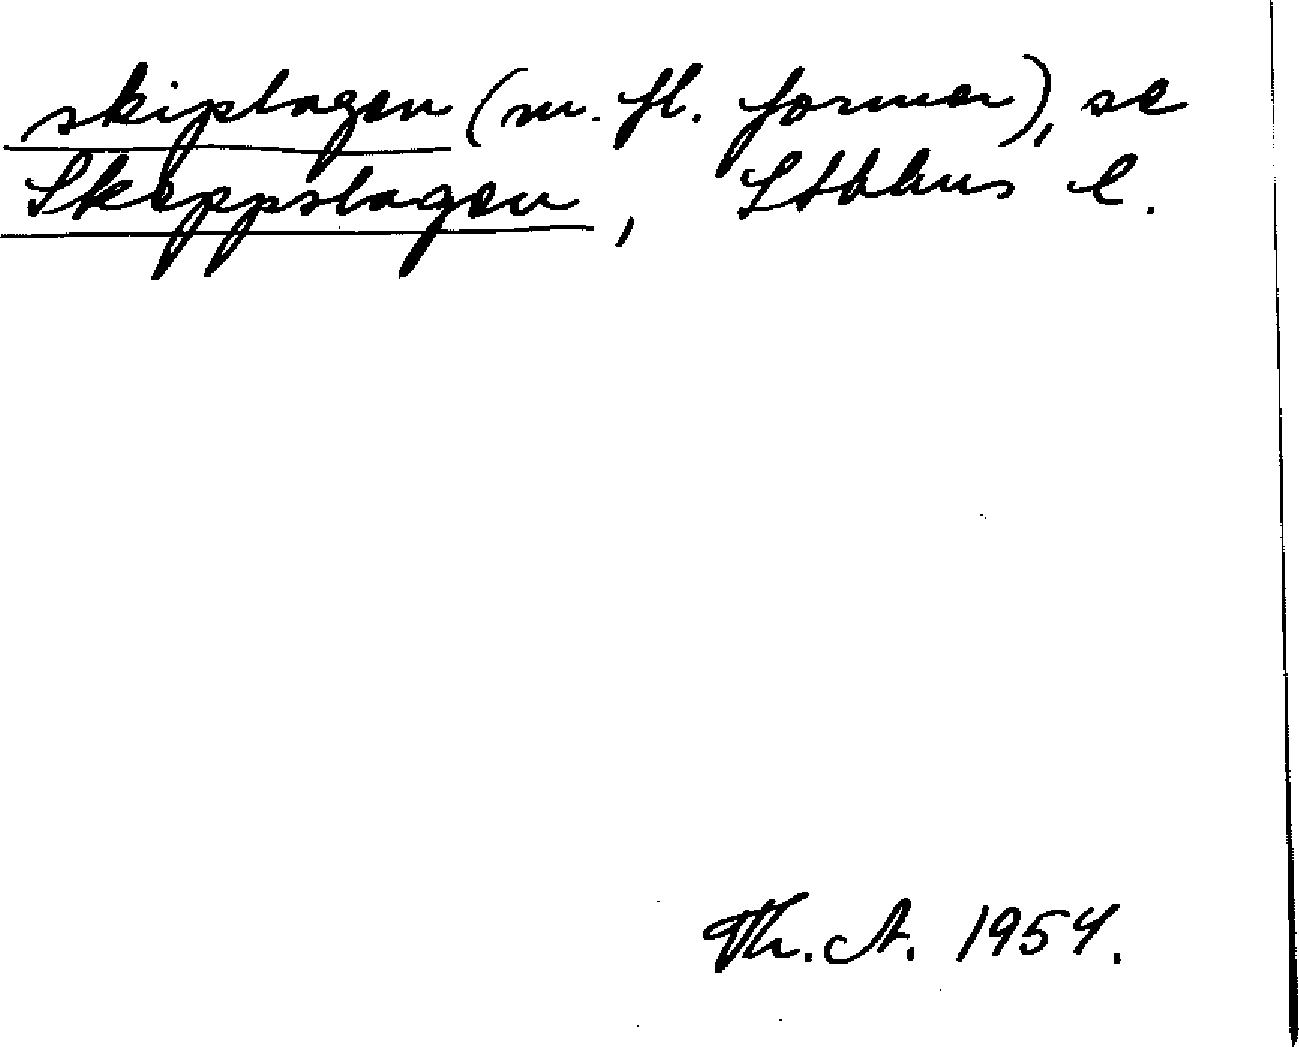 skiplagen (m. fl. former), se
Skeppslagen, Sthlms l.
Th. A. 1954.